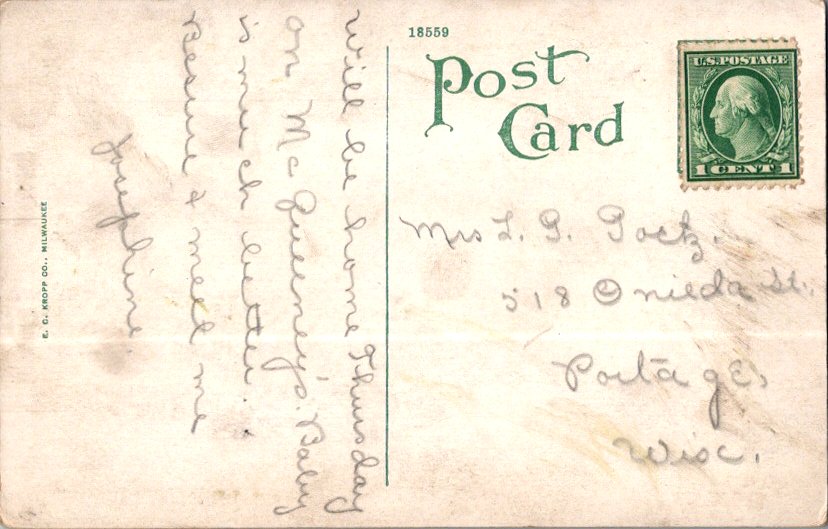 18559
Post
Card
U.S. POSTAGE
1 CENT 1
Will be home Thursday
on McQueeney's. Baby
is much better.
Besure & meet me
Josephine.
Mrs L. G. Goetz.
518 Oneida St.
Portage,
Wisc.
E. C. KROPP CO., MILWAUKEE